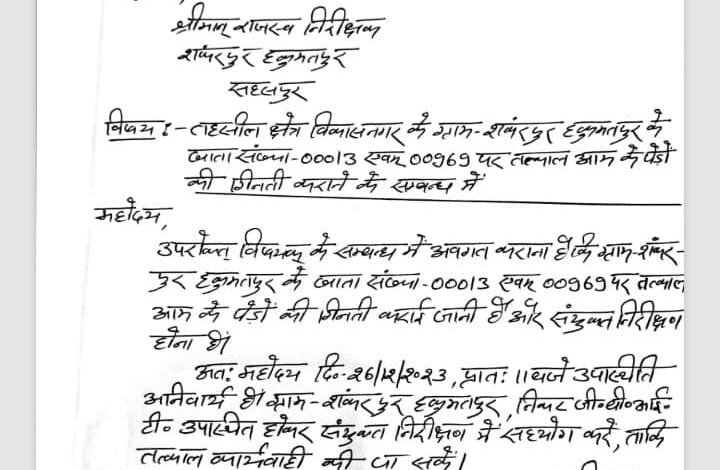 श्रीमान् राजस्व निरीक्षक
शंकरपुर हकुमतपुर
सहसपुर
विषय :- तहसील क्षेत्र विकासनगर के ग्राम-शंकरपुर हकुमतपुर के
खाता संख्या-00013 एवम् 00969 पर तत्काल आम के पेड़ो
की गिनती कराने के सम्बन्ध में
महोदय,
उपरोक्त विषयक के सम्बन्ध में अवगत कराना है कि ग्राम-शंकर-
पुर हकुमतपुर के खाता संख्या-00013 एवम् 00969 पर तत्काल
आम के पेड़ों की गिनती कराई जानी है और संयुक्त निरीक्षण
होना है।
अतः महोदय दि०-26/12/2023, प्रातः 11 बजे उपस्थिति
अनिवार्य है। ग्राम-शंकरपुर हकुमतपुर, निकट जी०पी०आई०
टी० उपस्थित होकर संयुक्त निरीक्षण में सहयोग करें, ताकि
तत्काल कार्यवाही की जा सके।